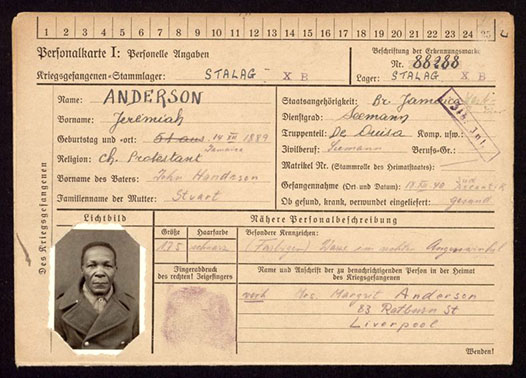 1 2 3 4 5 6 7 8 9 10 11 12 13 14 15 16 17 18 19 20 21 22 23 24 25
Personalkarte I: Personelle Angaben
Kriegsgefangenen-Stammlager: STALAG X B
Beschriftung der Erkennungsmarke
Nr. 88288
Lager: STALAG X B
Des Kriegsgefangenen
Name: ANDERSON
Vorname: Jeremiah
Geburtstag und -ort: 14 XII 1889
Jamaica
Religion: Ch. Protestant
Vorname des Vaters: John Handeson
Familienname der Mutter: Stuart
Staatsangehörigkeit: Br. Jamaica
Dienstgrad: Seemann
Truppenteil: De Quisa Komp. usw.:
Zivilberuf: Seemann Berufs-Gr.:
Matrikel Nr. (Stammrolle des Heimatstaates):
Gefangennahme (Ort und Datum): 18 XII 40
Ob gesund, krank, verwundet eingeliefert: gesund
Lichtbild
Nähere Personalbeschreibung
Größe Haarfarbe Besondere Kennzeichen:
175 schwarz (Farbiger)
Fingerabdruck
des rechten! Zeigefingers
Name und Anschrift der zu benachrichtigenden Person in der Heimat
des Kriegsgefangenen
Mrs. Margret Anderson
83 Rathburn St
Liverpool
Wenden!